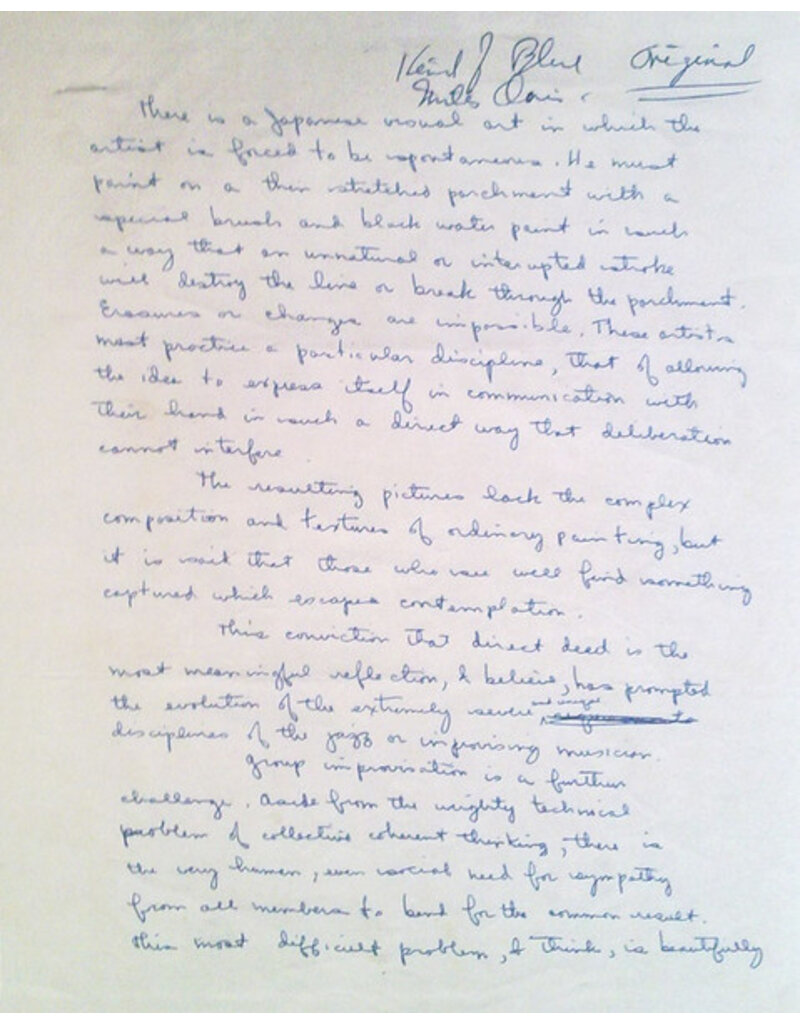 Kind of Blue Original
Miles Davis.
There is a Japanese visual art in which the
artist is forced to be spontaneous. He must
paint on a thin stretched parchment with a
special brush and black water paint in such
a way that an unnatural or interrupted stroke
will destroy the line or break through the parchment.
Erasures or changes are impossible. These artists
must practice a particular discipline, that of allowing
the idea to express itself in communication with
their hand in such a direct way that deliberation
cannot interfere
The resulting pictures lack the complex
composition and textures of ordinary painting, but
it is said that those who see well find something
captured which escapes contemplation.
This conviction that direct deed is the
most meaningful reflection, I believe, has prompted
the evolution of the extremely severe and unique
disciplines of the jazz or improvising musician.
Group improvisation is a further
challenge. Aside from the weighty technical
problem of collective coherent thinking, there is
the very human, even social need for sympathy
from all members to bend for the common result.
This most difficult problem, I think, is beautifully